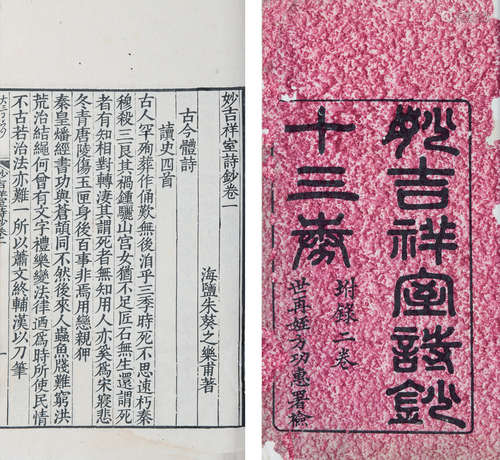 妙吉祥室詩鈔
十三卷
坿錄二卷
世再姪方功惠署檢
妙吉祥室詩鈔卷一
海鹽朱葵之樂甫著
古今體詩
讀史四首
古人罕殉葬作俑歎無後洎乎三季時死不思速朽秦
穆殺三良其禍鍾驪山宮女猶不足匠石無生還謂死
者有知相對轉淒其謂死者無知用人亦奚爲宋寢悲
冬青唐陵傷玉匣身後百事非焉用戀親狎
秦皇燔經書功與蒼頡同不然後來人蟲魚牋難窮洪
荒治結繩何曾有文字禮樂變法律酒爲時所使民情
不古若治法亦難一所以蕭文終輔漢以刀筆
妙吉祥室詩鈔卷一
一